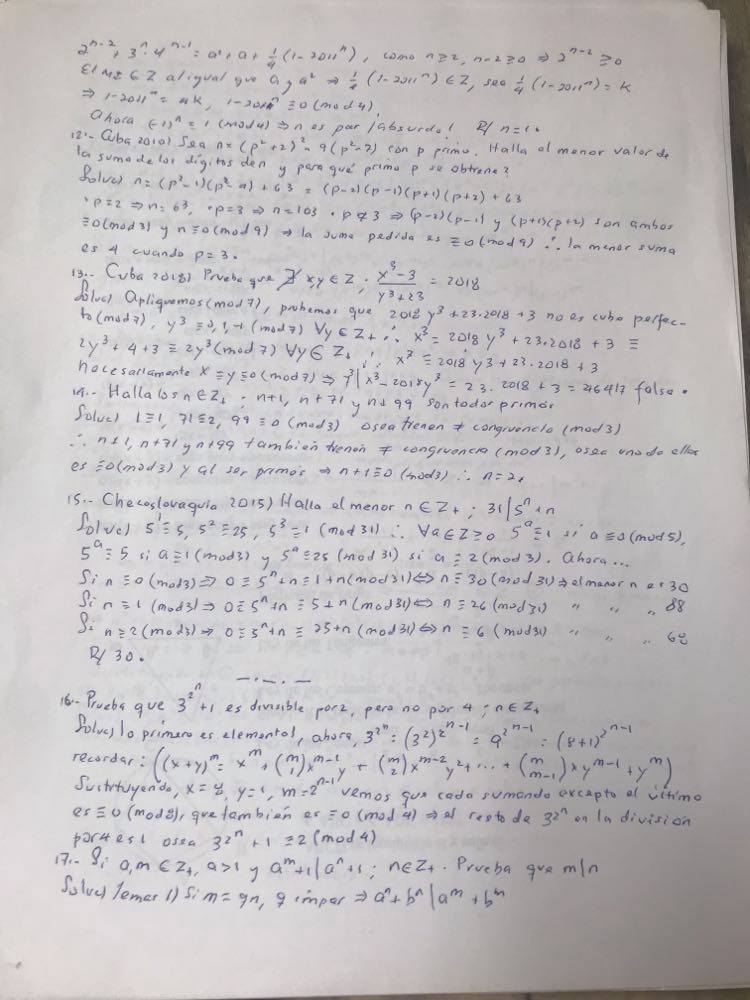 2^{n-2} + 3^n · 4^{n-1} = a² + a + 1/4 (1-2011^n), como n≥2, n-2≥0 ⇒ 2^{n-2} ≥0
El MI ∈ Z al igual que a y a² ⇒ 1/4 (1-2011^n) ∈ Z, sea 1/4 (1-2011^n) = K
⇒ 1-2011^n = 4K, 1-2011^n ≡ 0 (mod 4)
Ahora (-1)^n ≡ 1 (mod 4) ⇒ n es par ¡absurdo! R/ n=1.
12.- Cuba 2010) Sea n = (p²+2)² - 9(p²-7) con p primo. Halla el menor valor de
la suma de los dígitos de n y para qué primo p se obtiene?
Soluc) n = (p²-1)(p²-4) + 63 = (p-2)(p-1)(p+1)(p+2) + 63
· p=2 ⇒ n=63, · p=3 ⇒ n=103 · p≠3 ⇒ (p-2)(p-1) y (p+1)(p+2) son ambos
≡0(mod 3) y n≡0(mod 9) ⇒ la suma pedida es ≡0(mod 9) ∴ la menor suma
es 4 cuando p=3.
13.- Cuba 2018) Prueba que ∄ x,y ∈ Z ; (x³-3)/(y³+23) = 2018
Soluc) Apliquemos (mod 7), probemos que 2018 y³ + 23·2018 + 3 no es cubo perfec-
to (mod 7), y³ ≡ 0,1,-1 (mod 7) ∀y ∈ Z+ ∴ x³ = 2018 y³ + 23·2018 + 3 ≡
2y³ + 4 + 3 ≡ 2y³ (mod 7) ∀y ∈ Z+ ∴ x³ = 2018 y³ + 23·2018 + 3
necesariamente x≡y≡0(mod 7) ⇒ 7³ | x³-2018y³ = 23·2018 + 3 = 46417 falso.
14.- Halla los n∈Z+ ; n+1, n+71 y n+99 son todos primos
Soluc) 1≡1, 71≡2, 99≡0 (mod 3) osea tienen ≠ congruencia (mod 3)
∴ n+1, n+71 y n+99 también tienen ≠ congruencia (mod 3), osea uno de ellos
es ≡0(mod 3) y al ser primos ⇒ n+1≡0 (mod 3) ∴ n=2.
15.- Checoslovaquia 2015) Halla el menor n∈Z+ ; 31 | 5^n + n
Soluc) 5^1 ≡ 5, 5² ≡ 25, 5³ ≡ 1 (mod 31) ∴ ∀a∈Z≥0 5^a ≡ 1 si a≡0(mod 5),
5^a ≡ 5 si a≡1(mod 3) y 5^a ≡ 25 (mod 31) si a≡2(mod 3). Ahora...
Si n≡0(mod 3) ⇒ 0≡5^n+n≡1+n(mod 31) ⇔ n≡30(mod 31) ⇒ el menor n es 30
Si n≡1(mod 3) ⇒ 0≡5^n+n≡5+n(mod 31) ⇔ n≡26(mod 31) " " " 88
Si n≡2(mod 3) ⇒ 0≡5^n+n≡25+n(mod 31) ⇔ n≡6(mod 31) " " " 68
R/ 30.
—·—·—
16.- Prueba que 3^{2^n} + 1 es divisible por 2, pero no por 4 ; n∈Z+
Soluc) lo primero es elemental, ahora, 3^{2^n} = (3²)^{2^{n-1}} = 9^{2^{n-1}} = (8+1)^{2^{n-1}}
recordar: ((x+y)^m = x^m + (m 1) x^{m-1} y + (m 2) x^{m-2} y² + ... + (m m-1) x y^{m-1} + y^m)
Sustituyendo, x=8, y=1, m=2^{n-1} vemos que cada sumando excepto el último
es ≡0(mod 8), que también es ≡0(mod 4) ⇒ el resto de 3^{2^n} en la división
por 4 es 1 osea 3^{2^n} + 1 ≡ 2 (mod 4)
17.- Si a,m ∈ Z+, a>1 y a^m+1 | a^n+1 ; n∈Z+. Prueba que m|n
Soluc) lemas 1) Si m=qn, q impar ⇒ a^n + b^n | a^m + b^m